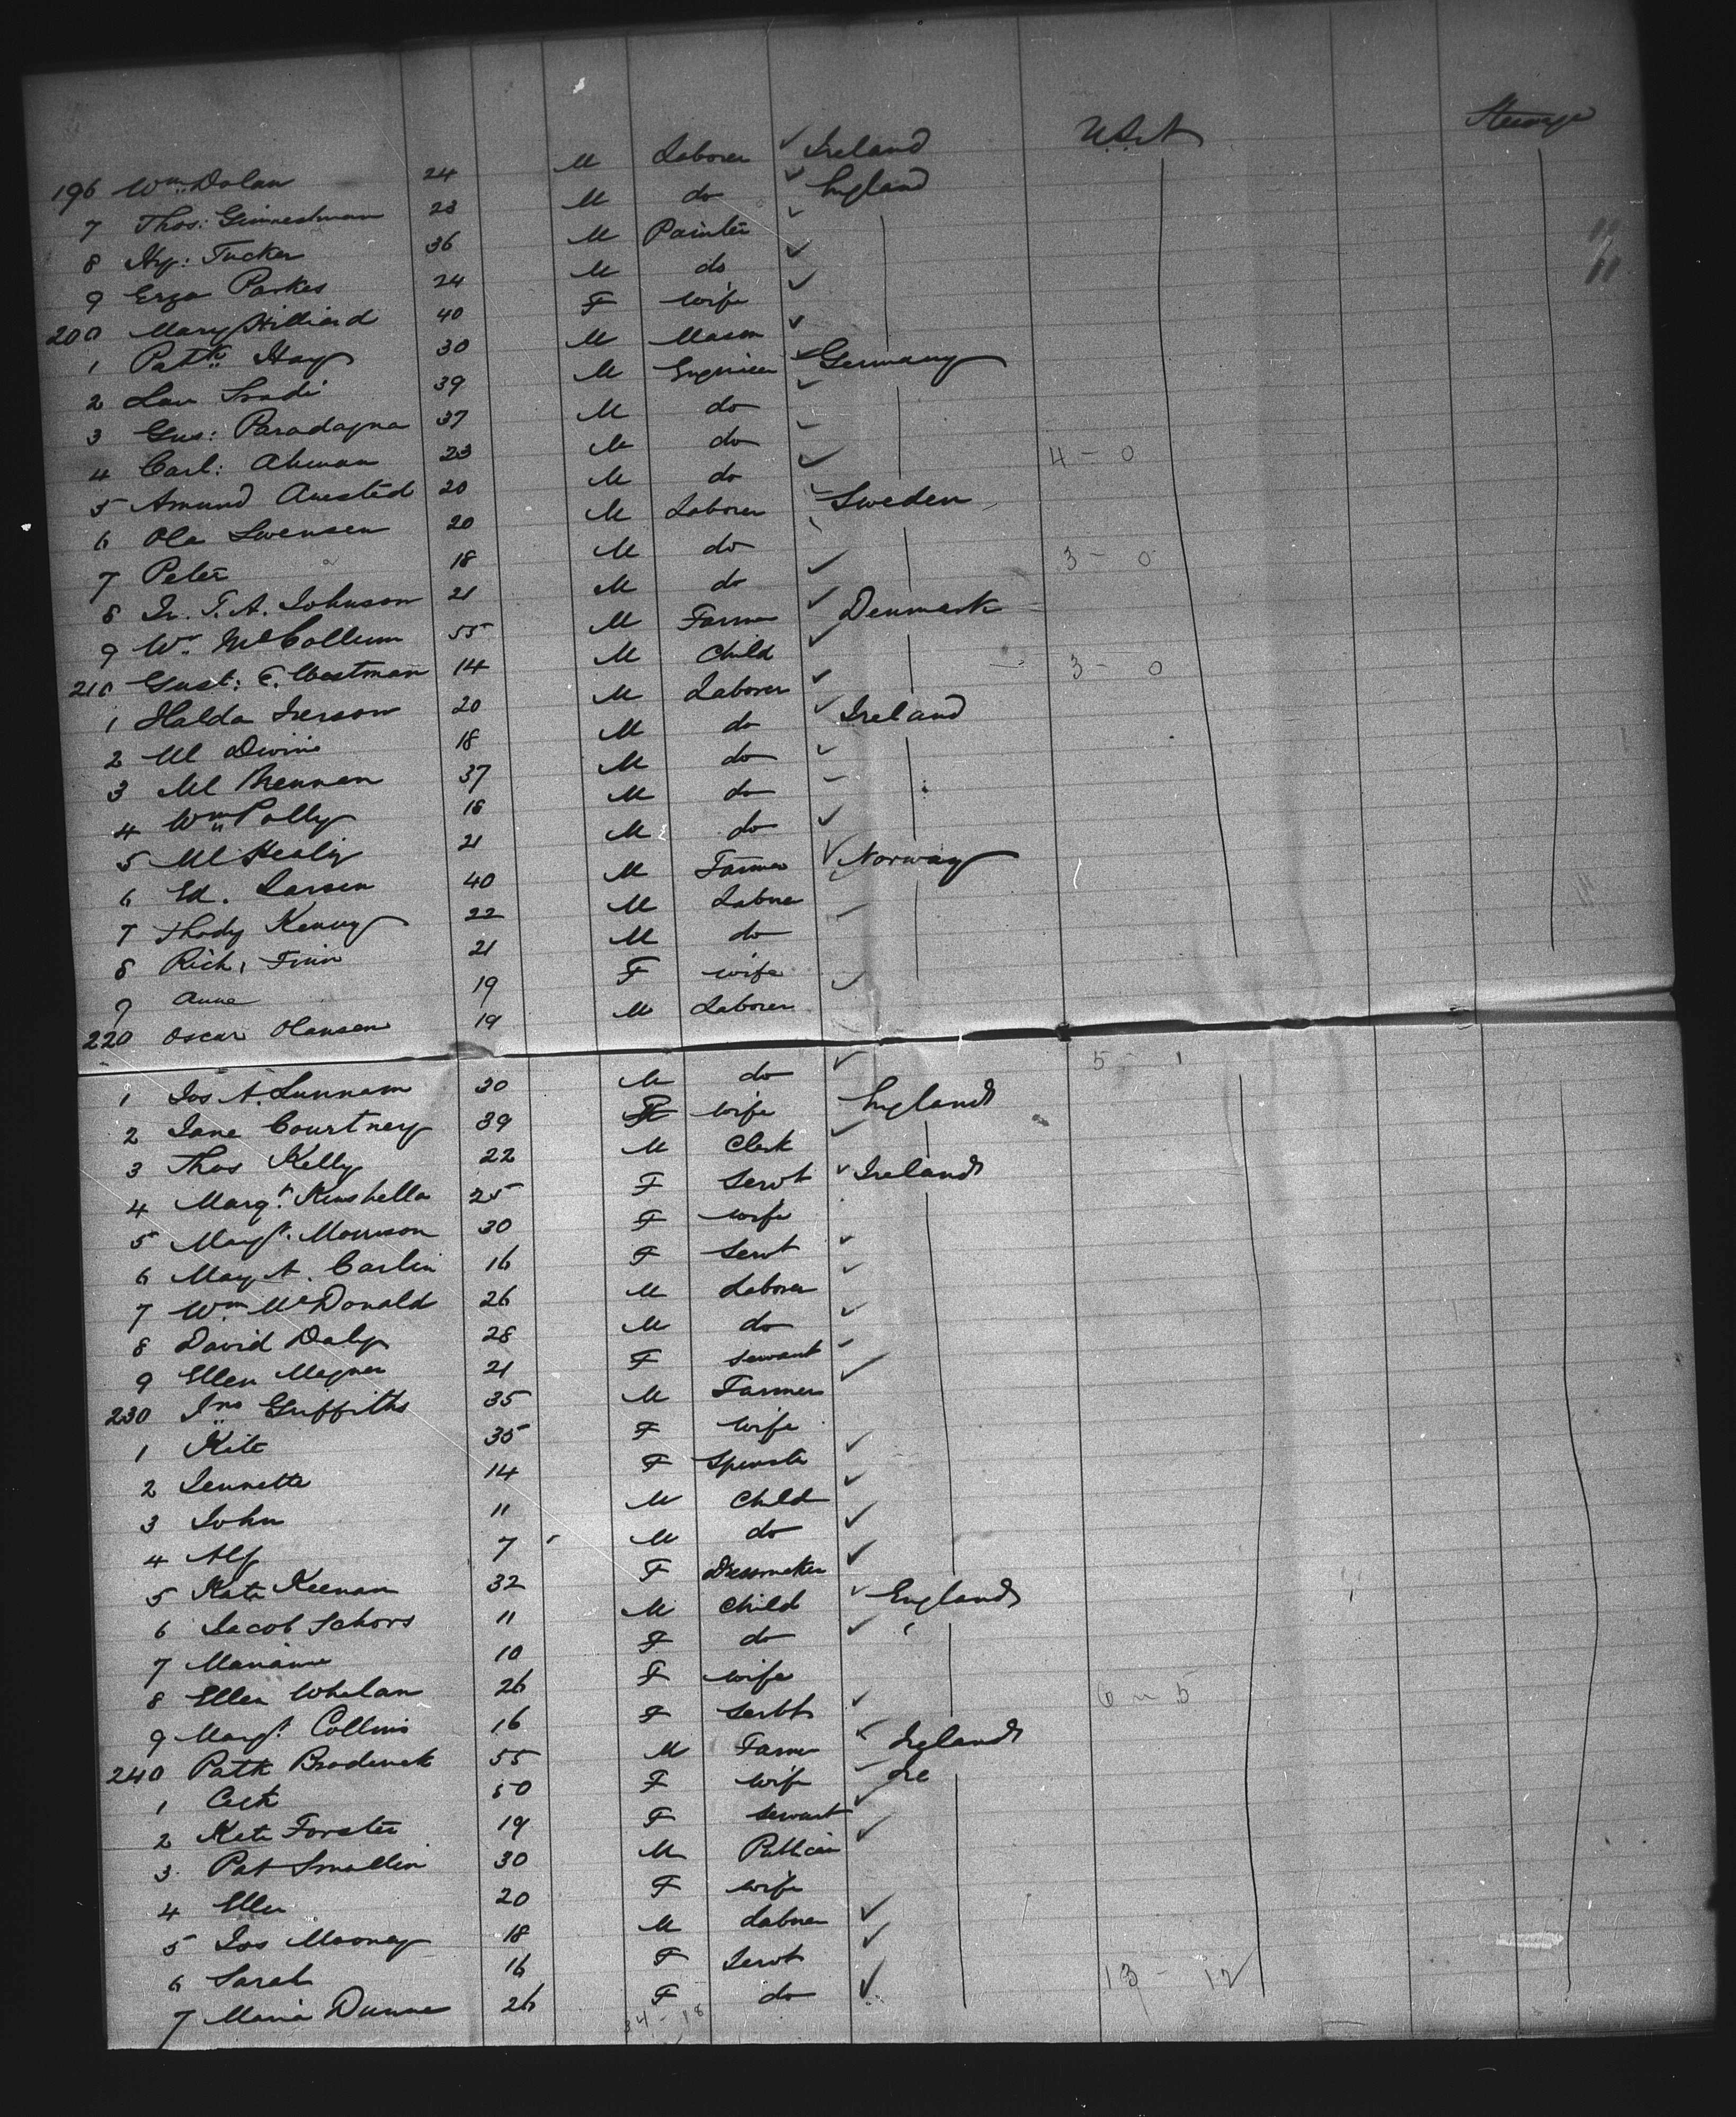 U.S.A Steerage
196 Wm Dolan 24 M Laborer ✓ Ireland
7 Thos: 23 M do ✓ England
8 Hy: Tucker 36 M Painter ✓
9 Ezra Parkes 24 M do ✓
200 Mary Hilliard 40 F Wife ✓
1 Patk Hay 30 M Mason ✓
2 39 M Engineer ✓ Germany
3 Gus: 37 M do ✓
4 Carl: Ahman 23 M do 4 - 0
5 Amund Austed 20 M do ✓
6 Ola Swensen 20 M Laborer Sweden
7 Peter 18 M do 3 - 0
8 T. A. Johnson 21 M do ✓
9 Wm McCollum 55 M Farmer ✓ Denmark
210 Gust: E. Westman 14 M Child ✓ 3 - 0
1 Halda 20 M Laborer ✓
2 Ml Divine 18 M do ✓ Ireland
3 Ml Brennan 37 M do ✓
4 Wm Polly 18 M do
5 Ml Healy 21 M do ✓
6 Ed. Larsen 40 M Farmer ✓ Norway
7 Thody Kenny 22 M Labrer
8 Rich: Finn 21 M do
9 Anne 19 F wife ✓
220 Oscar Olansen 19 M Laborer
1 Jos A. Lunnam 30 M do ✓ 5 - 1
2 Jane Courtney 39 F Wife England
3 Thos Kelly 22 M Clerk ✓
4 Margt Kinshella 25 F Servt ✓ Ireland
5 Margt. Morrison 30 F wife
6 Mary A. Carlin 16 F Servt ✓
7 Wm McDonald 26 M Laborer ✓
8 David Daly 28 M do ✓
9 Ellen Magner 21 F Servant ✓
230 Jno Griffiths 35 M Farmer ✓
1 Kate 35 F Wife
2 Jennette 14 F Spinster ✓
3 John 11 M Child ✓
4 Alf 7 M do ✓
5 Kate Keenan 32 F Dressmaker ✓
6 Jacob Schors 11 M Child ✓ England
7 Marianne 10 F do ✓
8 Ellen Whelan 26 F wife 6 - 5
9 Margt. Collins 16 F Servt ✓
240 Patk Broderick 55 M Farmer ✓ Ireland
1 Cath 50 F Wife Ire
2 Kate Forster 19 F Servant ✓
3 Pat Smallin 30 M Publican ✓
4 Ellen 20 F wife
5 Jos Mooney 18 M Labrer ✓
6 Sarah 16 F Servt ✓
7 Maria Dunne 26 F do ✓ 13 - 12
34 - 18